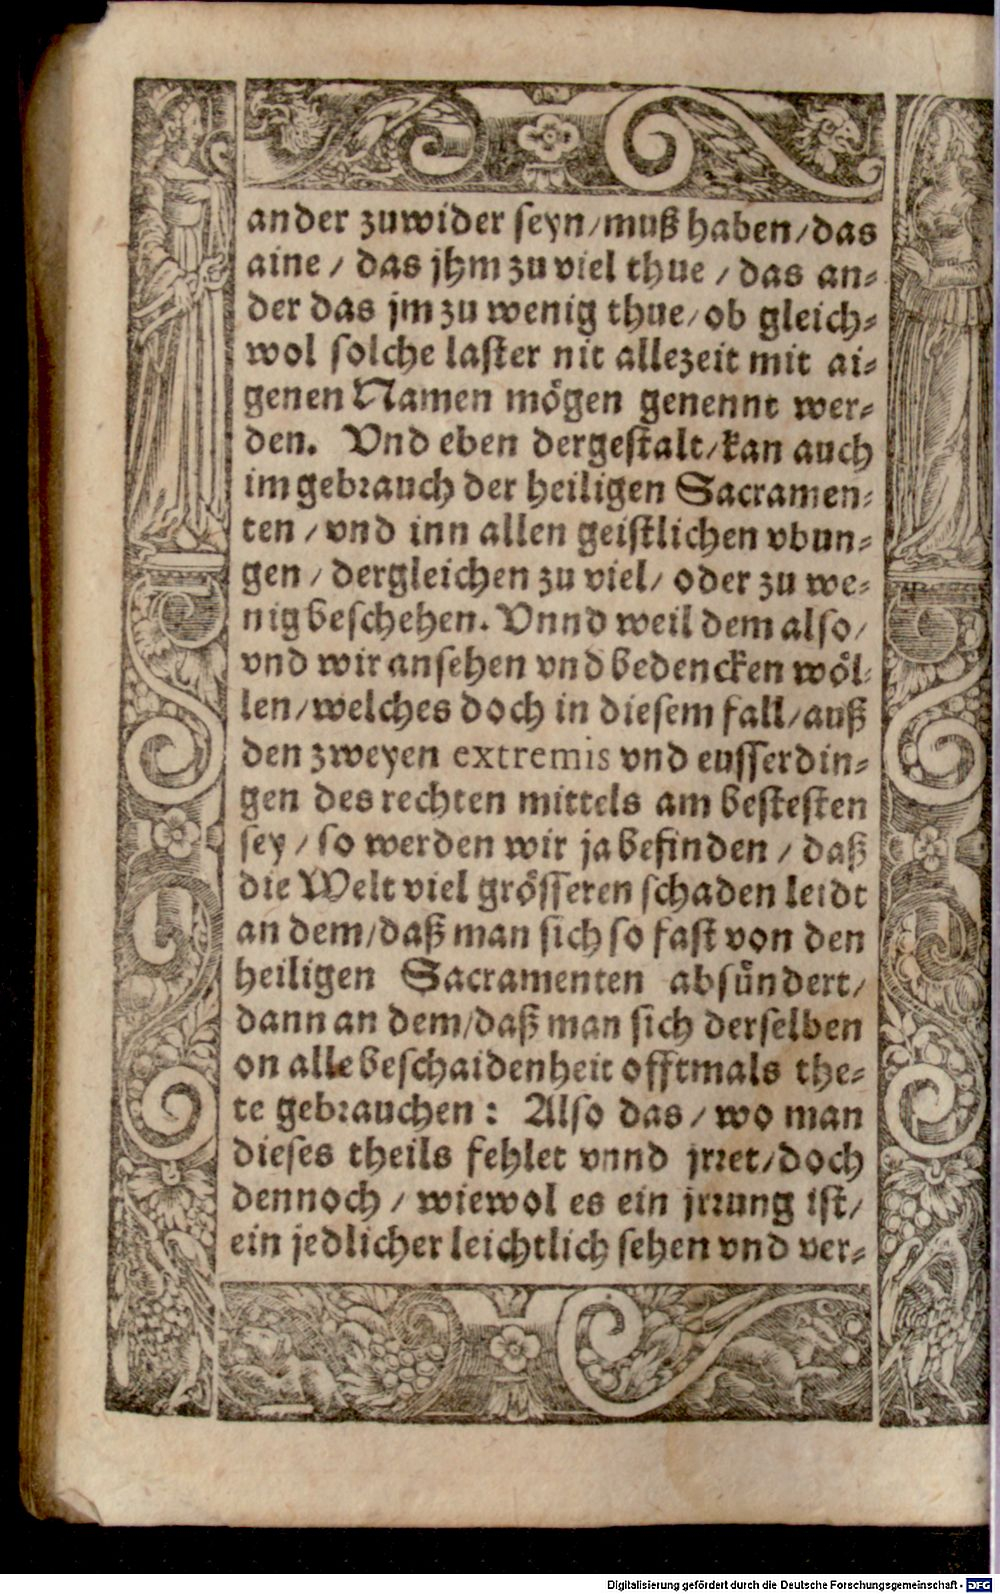 ander zuwider seyn/muß haben/das
aine / das jhm zu viel thue / das an-
der das jm zu wenig thue/ob gleich-
wol solche laster nit allezeit mit ai-
genen Namen mögen genennt wer-
den. Vnd eben dergestalt/kan auch
im gebrauch der heiligen Sacramen-
ten / vnd inn allen geistlichen vbun-
gen / dergleichen zu viel/ oder zu we-
nig beschehen. Vnnd weil dem also/
vnd wir ansehen vnd bedencken wöl-
len/welches doch in diesem fall/auß
den zweyen extremis vnd eusserdin-
gen des rechten mittels am bestesten
sey / so werden wir ja befinden / daß
die Welt viel grösseren schaden leidt
an dem/daß man sich so fast von den
heiligen Sacramenten absündert/
dann an dem/daß man sich derselben
on alle beschaidenheit offtmals the-
te gebrauchen: Also das / wo man
dieses theils fehlet vnnd jrret/doch
dennoch / wiewol es ein jrrung ist/
ein jedlicher leichtlich sehen vnd ver-
Digitalisierung gefördert durch die Deutsche Forschungsgemeinschaft - DFG